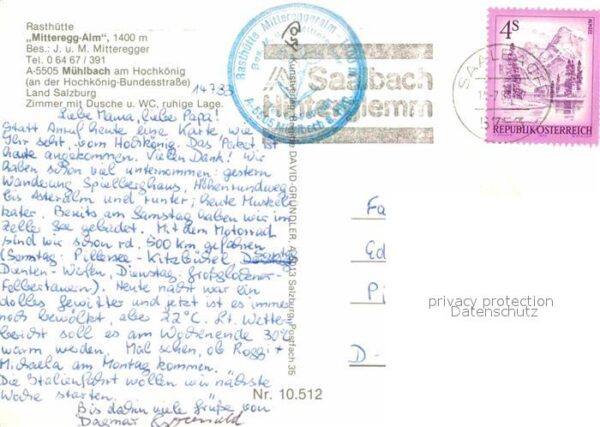 Rasthütte
"Mitteregg-Alm", 1400 m
Bes.: J. u. M. Mitteregger
Tel. 0 64 67 / 391
A-5505 Mühlbach am Hochkönig
(an der Hochkönig-Bundesstraße)
Land Salzburg
Zimmer mit Dusche u. WC, ruhige Lage.
Liebe Mama, liebe Papa!
Statt Anruf heute eine Karte wie
Ihr seht, vom Hochkönig. Das Paket ist
heute angekommen. Vielen Dank! Wir
haben schon viel unternommen: gestern
Wanderung Spielberghaus, Höhenrundweg
bis Asteralm und runter, heute Muskel
kater. Bereits am Samstag haben wir im
Zeller See gebadet. Mit dem Motorrad
sind wir schon rd. 500 km gefahren
(Sonntag: Pillersee - Kitzbühel
Dienten - Wefen, Dienstag: Großglockner-
Felbertauern). Heute nacht war ein
dolles Gewitter und jetzt ist es immer
noch bewölkt, aber 22°C. Lt. Wetter-
bericht soll es am Wochenende 30°
warm werden. Mal sehen, ob Rossi +
Michaela am Montag kommen.
Die Italienfahrt wollen wir nächste
Woche starten.
Bis dahin viele Grüße von
Dagmar
Rasthütte Mittereggeralm
Saalbach
Hinterglemm
SAALBACH
4 S
REPUBLIK ÖSTERREICH
DAVID-GRÜNDLER, A-5013 Salzburg, Postfach 35
Fa
Ed
Pi
D-
privacy protection
Datenschutz
Nr. 10.512